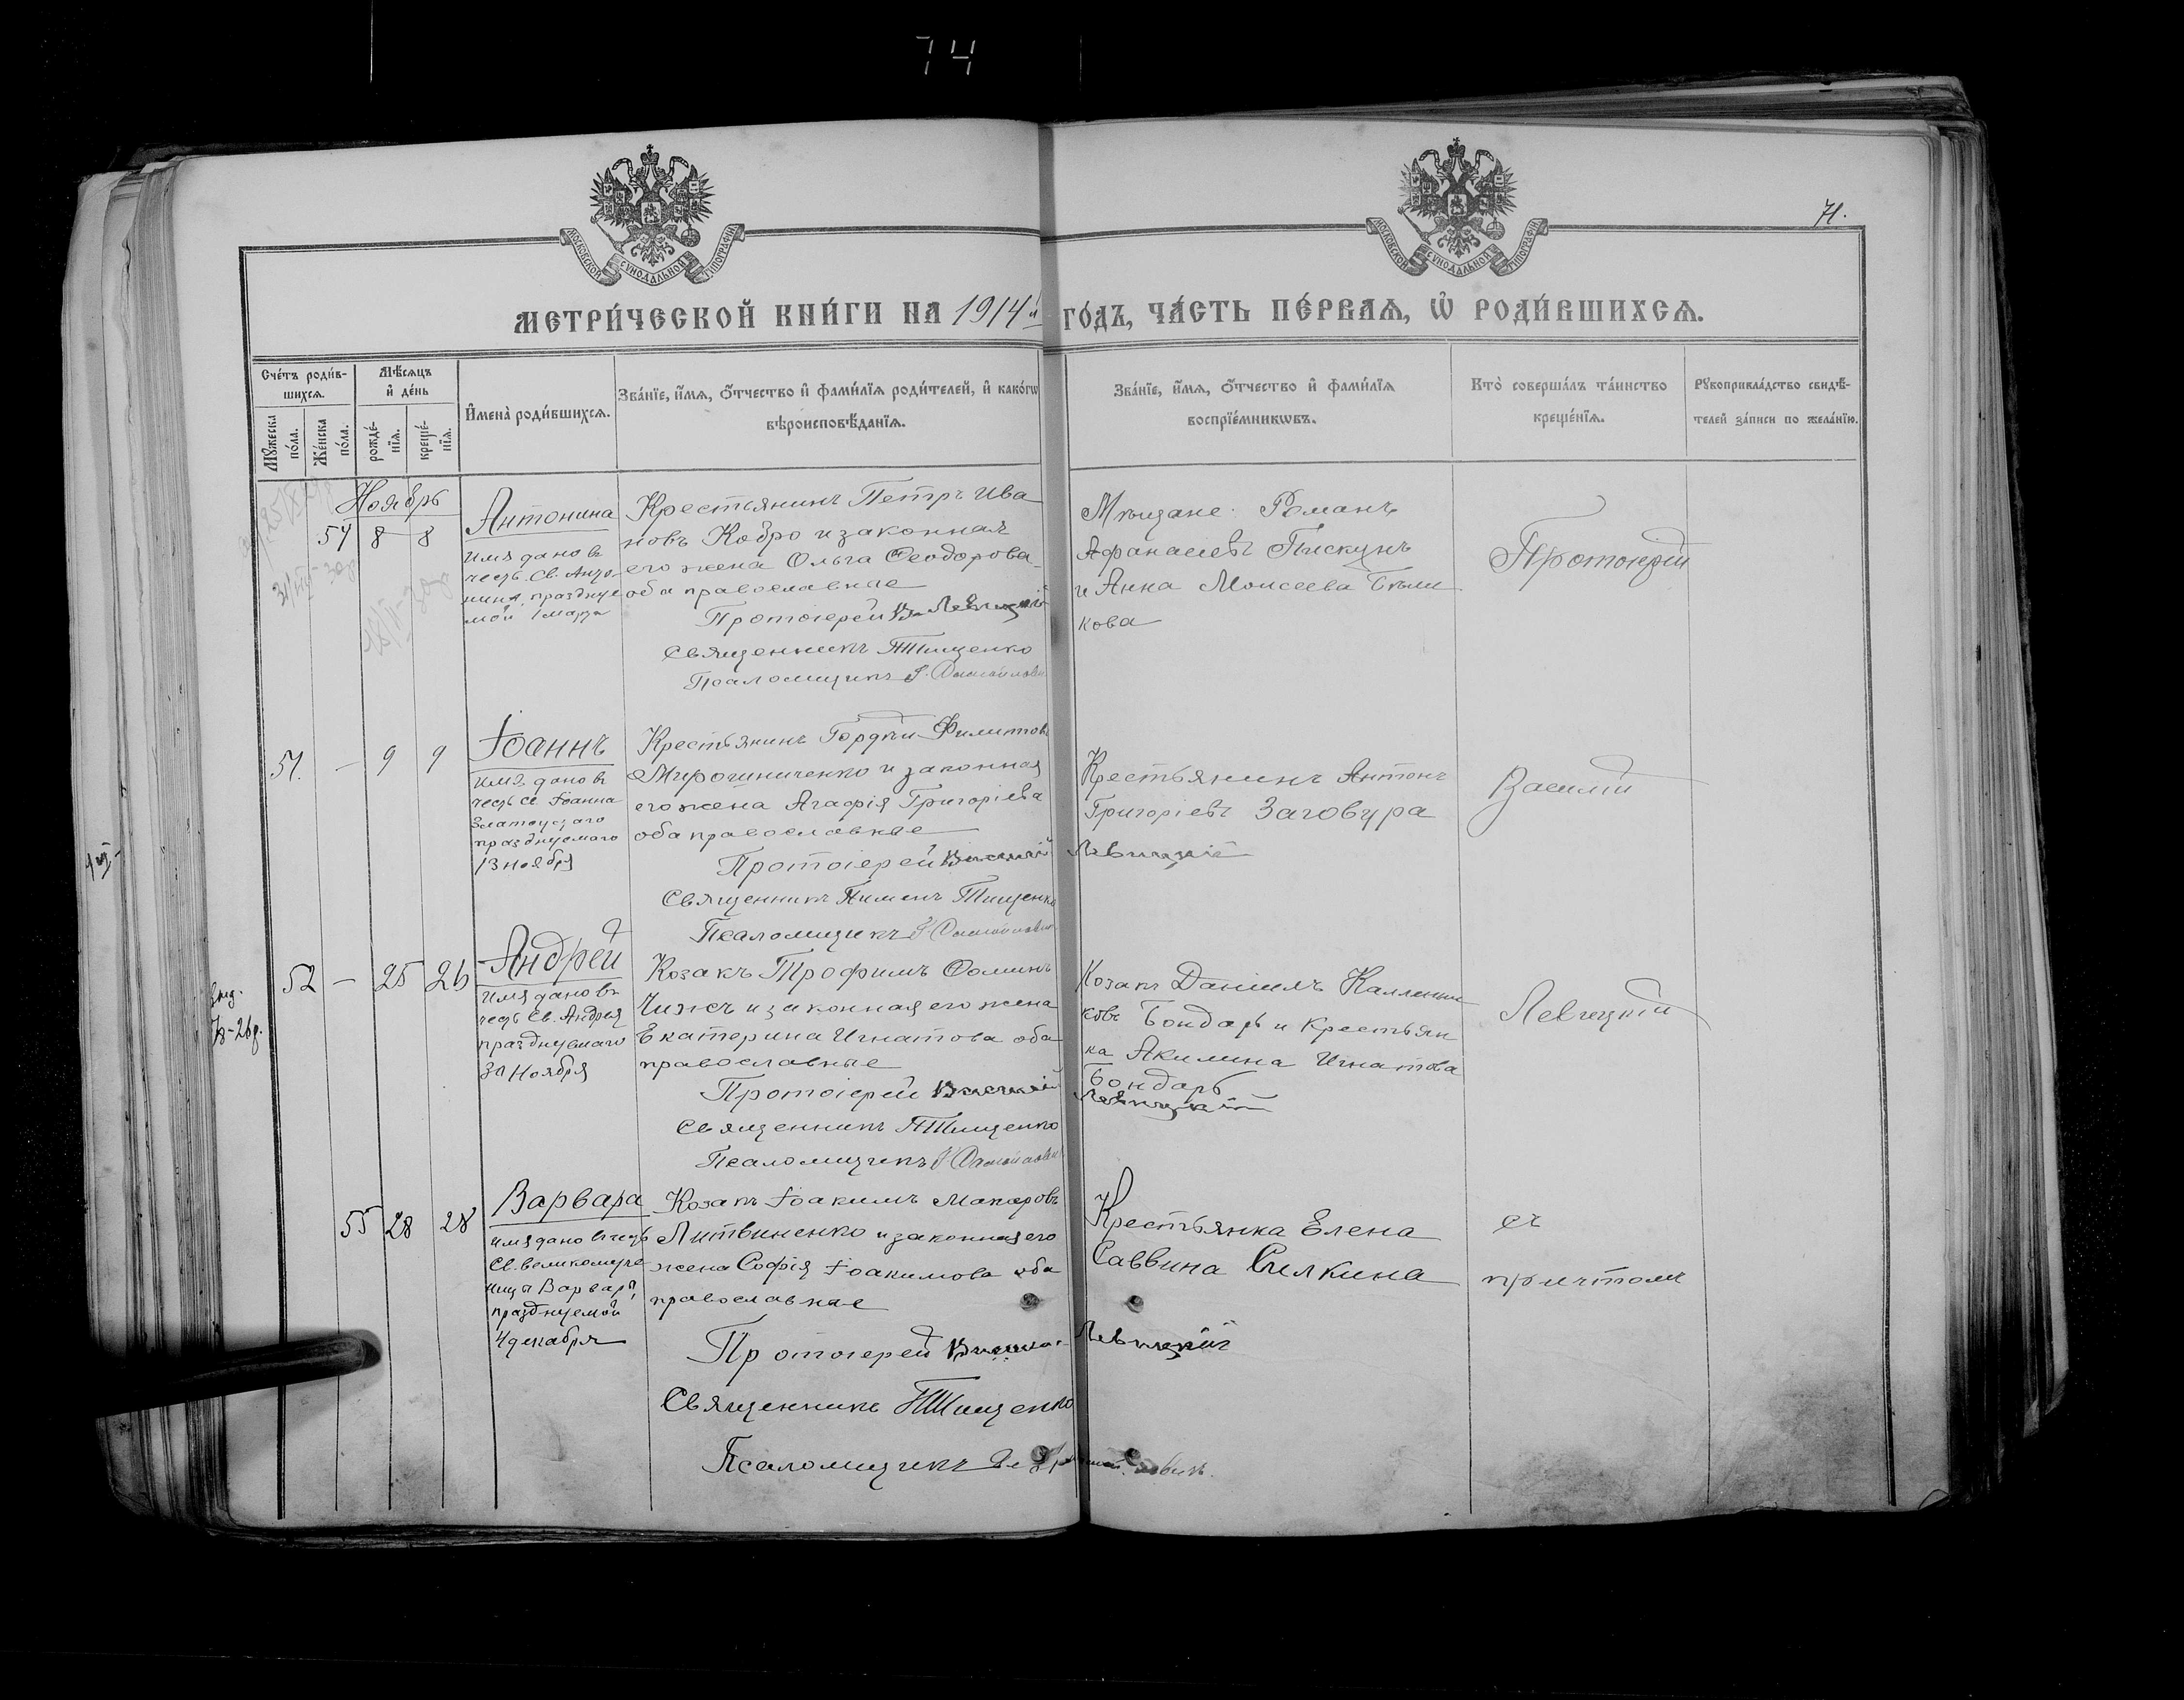 74
71.
МОСКОВСКОЙ СѴНОДАЛЬНОЙ ТИПОГРАФІИ
МОСКОВСКОЙ СѴНОДАЛЬНОЙ ТИПОГРАФІИ
МЕТРИ́ЧЕСКОЙ КНИ́ГИ НА 1914й ГО́ДЪ, ЧА́СТЬ ПЕ́РВАѦ, Ѡ РОДИ́ВШИХСѦ.
Сче́тъ роди́в-
шихсѧ.
Мꙋжеска по́ла.
Же́нска по́ла.
Мѣ́сѧцъ
и҆ де́нь
рожде́-
нїѧ.
креще́-
нїѧ.
И҆мена̀ роди́вшихсѧ.
Зва́нїе, и҆́мѧ, ѻ҆́тчество и҆ фами́лїѧ роди́телей, и҆ како́гѡ
вѣроисповѣ́данїѧ.
Зва́нїе, и҆́мѧ, ѻ҆́тчество и҆ фами́лїѧ
воспрїе́мникѡвъ.
Кто̀ соверша́лъ та́инство
креще́нїѧ.
Рꙋкоприкла́дство свидѣ́-
телей за́писи по жела́нїю.
Ноябрь
54 8 8
Антонина
имя дано въ
честь Св. Анто-
нины празднуе
мой 1 марта
Крестьянинъ Петръ Ива
новъ Кобро и законная
его жена Ольга Ѳеодорова
оба православные
Протоіерей В. Левицкій
Священникъ П Тищенко
Псаломщикъ
Мѣщане Романъ
Афанасіевъ Пискунъ
и Анна Моисеева Бѣли
кова
Протоіерей
51. — 9 9
Іоаннъ
имя дано въ
честь св Іоанна
Златоустаго
празднуемаго
13 ноября
Крестьянинъ Гордѣй Филиповъ
Мирошниченко и законная
его жена Агафія Григоріева
оба православные
Протоіерей Василій Левицкій
Священникъ Пименъ Тищенко
Псаломщикъ
Крестьянинъ Антонъ
Григоріевъ Заговура
Василій
52 — 25 26
Андрей
имя дано въ
честь Св. Андрея
празднуемаго
30 Ноября
Козакъ Трофимъ Ѳоминъ
Чижъ и законная его жена
Екатерина Игнатова оба
православные
Протоіерей Василій Левицкій
Священникъ П Тищенко
Псаломщикъ
Козакъ Даніилъ Каллини
ковъ Бондарь и крестьян
ка Акилина Игнатова
Бондарь
Левицкій
55 28 28
Варвара
имя дано въ честь
Св. великомуче
ницы Варвары,
празднуемой
4 декабря
Козакъ Іоакимъ Макаровъ
Литвиненко и законная его
жена Софія Іоакимова оба
православные
Протоіерей Василій Левицкій
Священникъ П Тищенко
Псаломщикъ
Крестьянка Елена
Саввина Силкина
съ
причтомъ